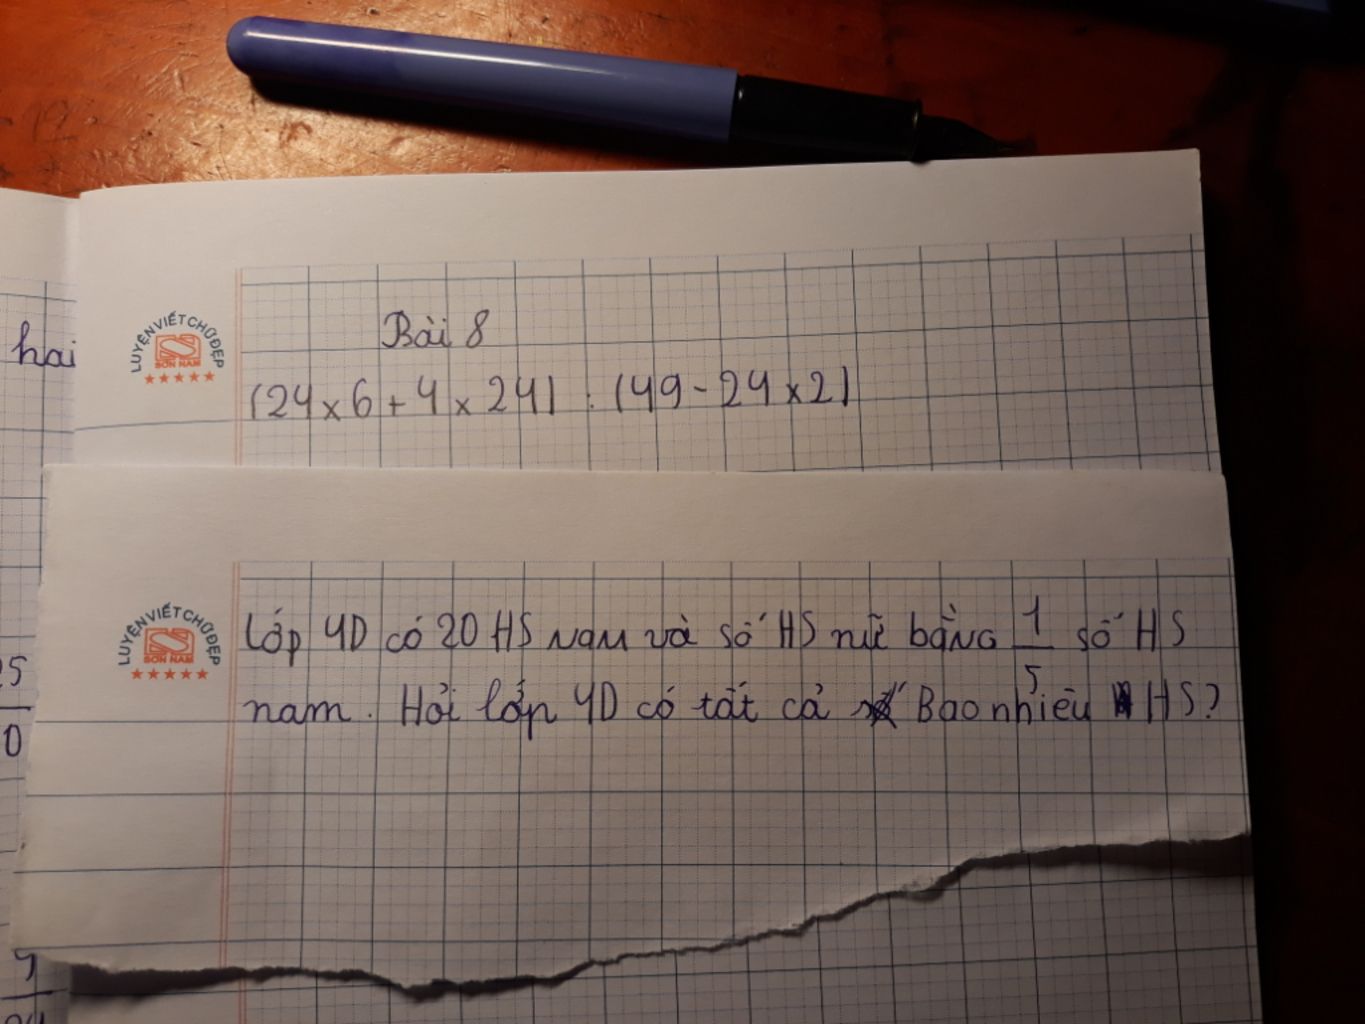 hai
LUYỆN VIẾT CHỮ ĐẸP
SƠN NAM
Bài 8
(24 x 6 + 4 x 24) : (49 - 24 x 2)
LUYỆN VIẾT CHỮ ĐẸP
SƠN NAM
Lớp 4D có 20 HS nam và số HS nữ bằng 1/5 số HS
nam. Hỏi lớp 4D có tất cả Bao nhiêu HS?